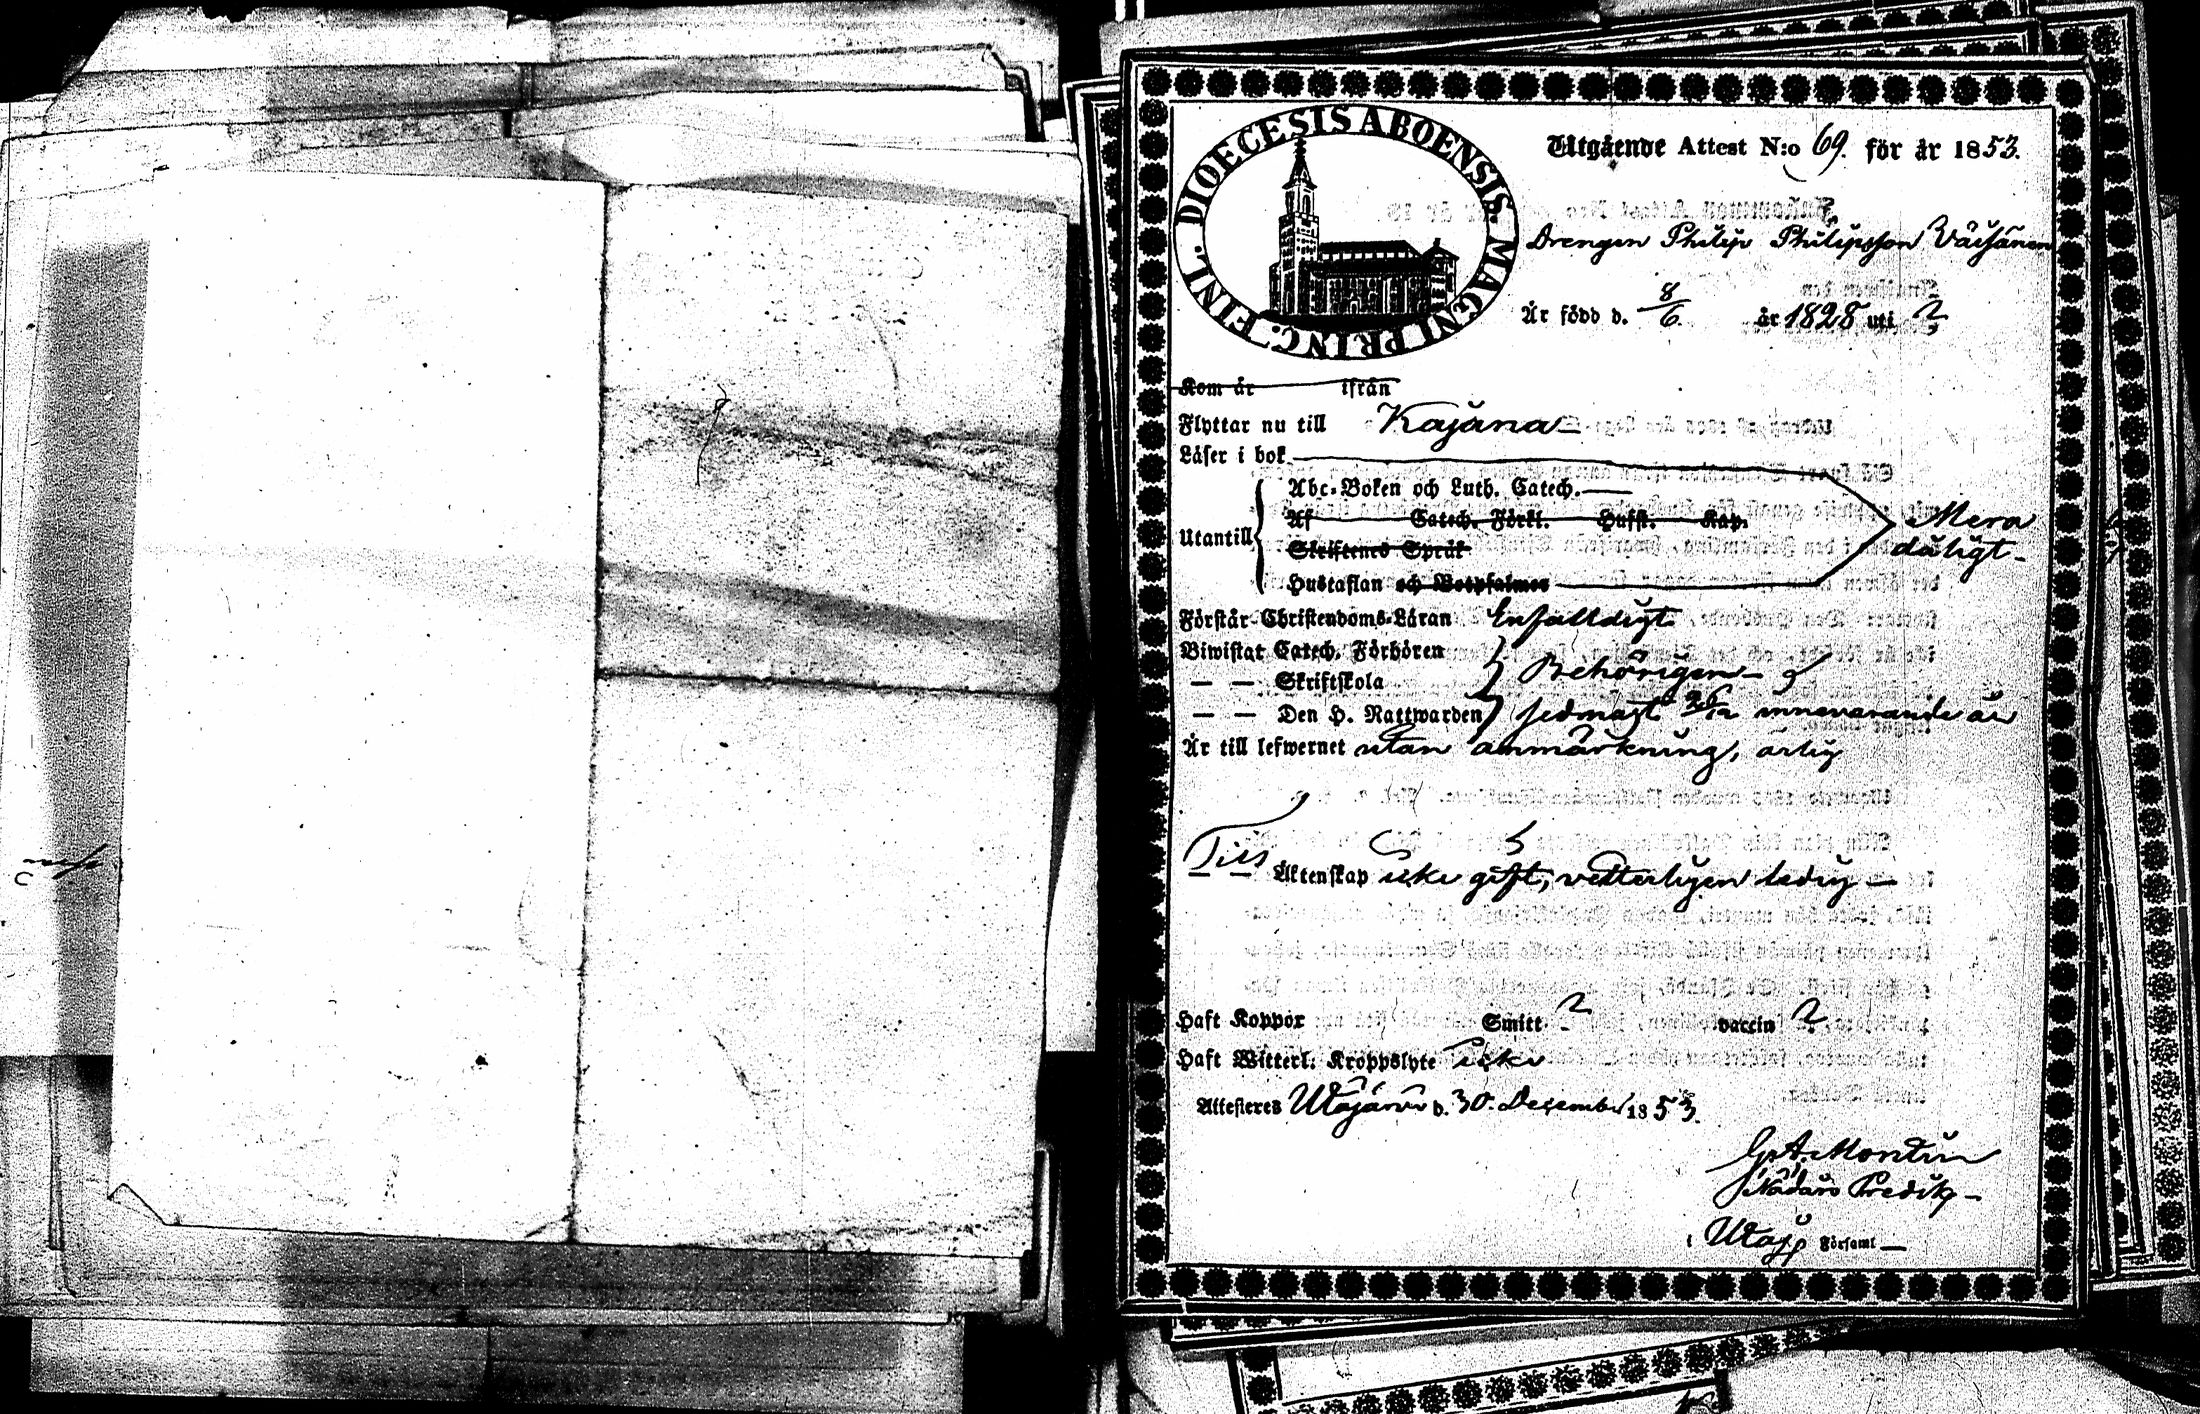 DIOECESIS ABOENSIS MAGNI PRINC. FINL.
Utgående Attest N:o 69. för år 1853.
Drengen Philip Philipsson Väisänen
Är född d. 8/6. år 1828 uti ?
Kom år ifrån
Flyttar nu till Kajana
Läser i bok
Abc-Boken och Luth. Catech.
Utantill
Af Catech. Förkl. Husst. Kap.
Skriftenes Språk
Hustaflan och Botpsalmer
Mera dåligt
Förstår Christendoms-Läran Enfalldigt
Biwistat Catech. Förhören
— — Skriftskola
Behörigen
— — Den H. Nattwarden sednast 26/12 innevarande år
Är till lefwernet utan anmärkning, ärlig
Till Äktenskap icke gift, vetterligen ledig
Haft Koppor Smitt ? vaccin ?
Haft Witterl. Kroppslyte icke
Attesteras Utajärvi d. 30. December 1853.
G. A. Montin
Nådårs Predik
i Utaj Församl